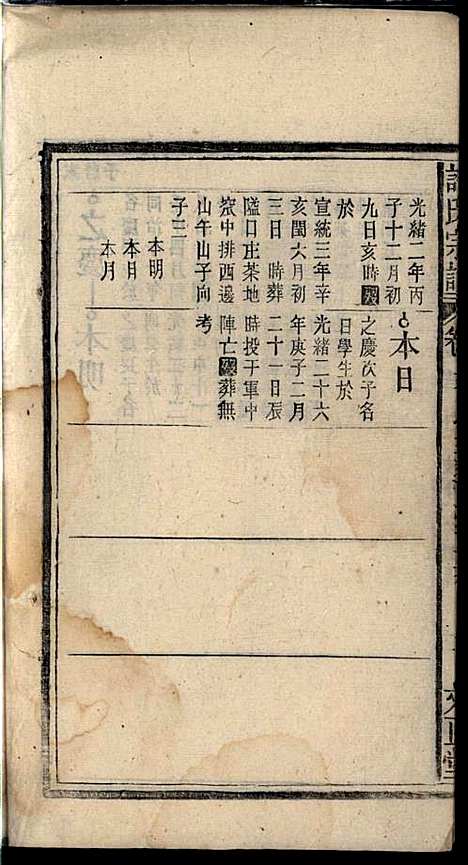 氏宗譜
卷
堂
光緒二年丙
子十二月初
九日亥時歿
於
宣統三年辛
亥閏六月初
三日 時葬
隘口庄茶地
中排西邊
山午山子向
子三
本明
本日
本月
本日
之慶次子名
日學生於
光緒二十六
年庚子二月
二十一日張
時投于軍中
陣亡歿葬無
考